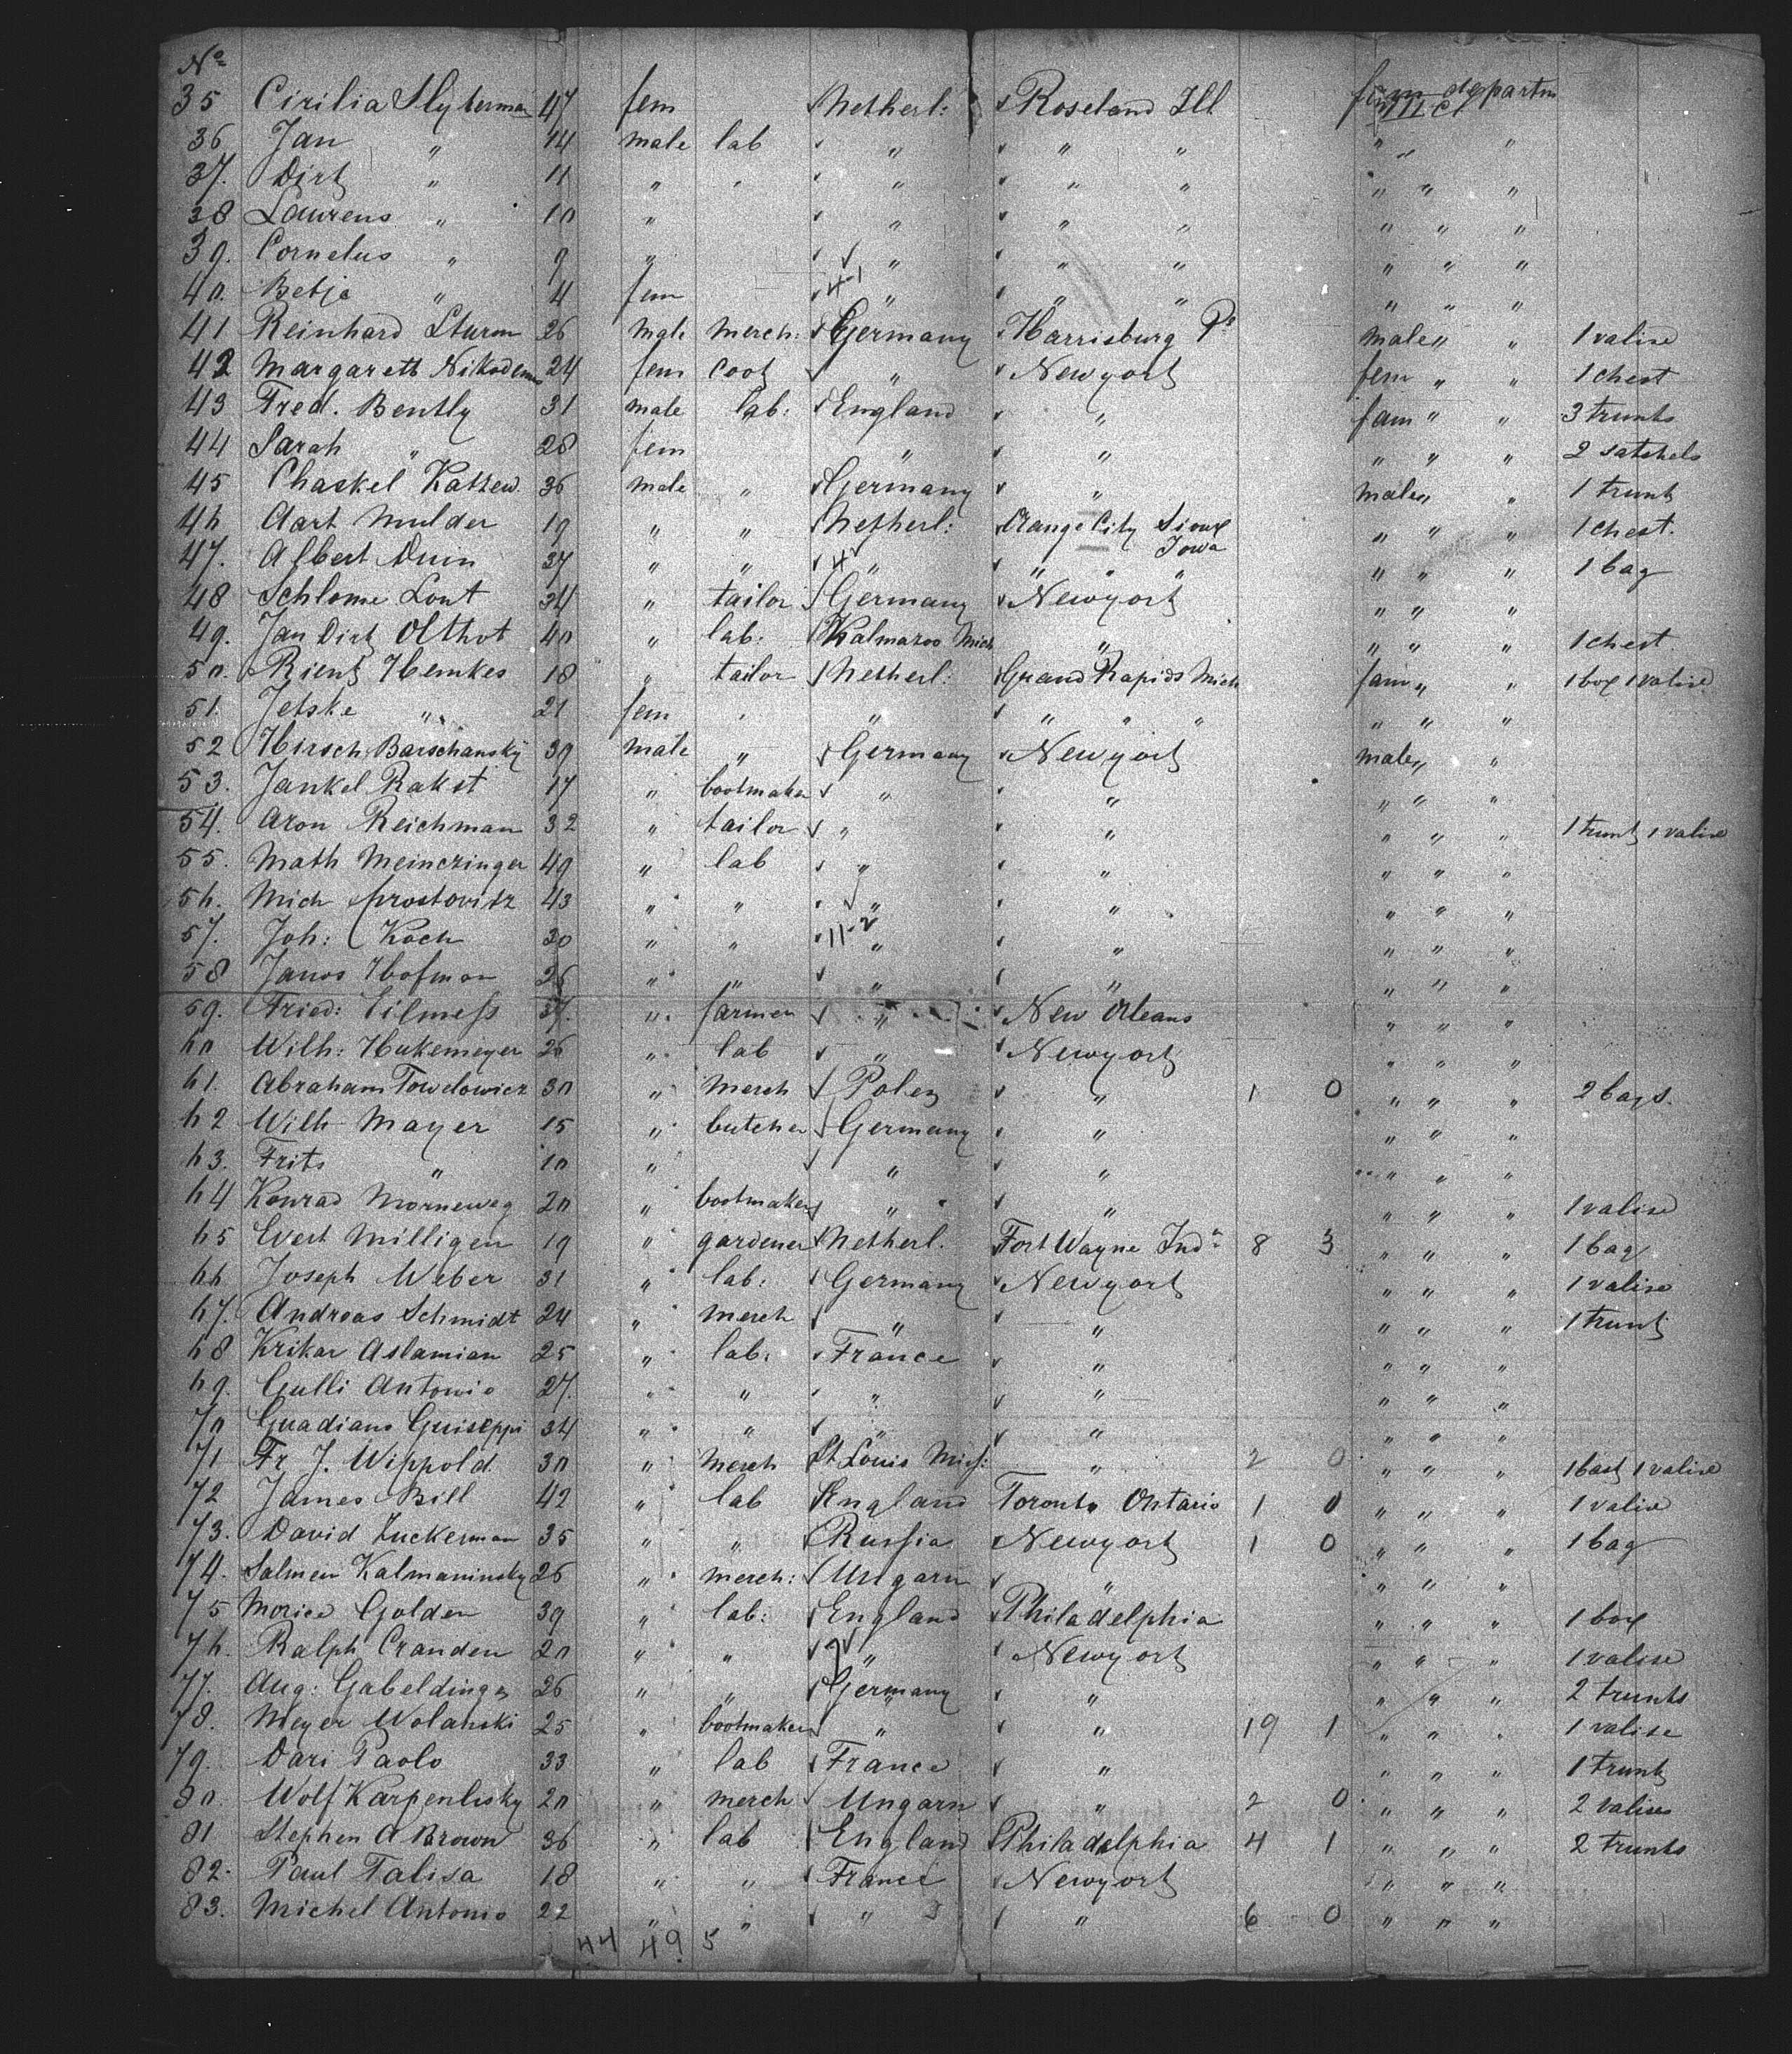 No
35 Cirilia Slyterman 47 fem Netherl: Roseland Ill. fam departm
36 Jan " 14 male lab " " " " " "
37. Dirk " 11 " " " " " " " "
38 Laurens " 10 " " " " " " "
39. Cornelus " 9 " " " " " " "
40. Betje " 4 fem " " " " " "
4-1
41 Reinhard Sturm 26 male merch: Germany Harrisburg Pa male " " 1 valise
42 Margareth Nikodemus 24 fem cook " Newyork fem " " 1 chest
43 Fred. Bently 31 male lab: England " fam " " 3 trunks
44 Sarah " 28 fem " " " " " 2 satchels
45 Chaskel Kattew. 36 male " Germany " male " " 1 trunk
46 Aart Mulder 19 " " Netherl: Orange City Sioux Iowa " " " 1 chest.
47. Albert Duin 37 " " " " " " " " " 1 bag
48 Schlome Lout 34 " tailor Germany Newyork " " "
49. Jan Dirk Olthot 40 " lab: Kalmazoo Mich " " " " 1 chest.
50. Rienk Hemkes 18 " tailor Netherl: Grand Rapids Mich fam " " 1 box 1 valise
51. Jetske " 21 fem " " " " " " " "
52 Hirsch Barschansky 39 male " Germany Newyork male " "
53. Jankel Rakst 17 " bootmaker " " " " "
54. Aron Reichman 32 " tailor " " " " " 1 trunk 1 valise
55. Math Meinczinger 49 " lab " " " " "
56. Mich Prostovitz 43 " " " " " " "
57. Joh: Koch 30 " " " " " " "
11-2
58 Janos Hofman 26 " " " " " " "
59. Fried: Eilmess 37. " farmer " New Orleans " " "
60 Wilh: Hukemeyer 26 " lab " Newyork " " "
61. Abraham Towdowicz 30 " merch Polen " 1 0 " " " 2 bags.
62 Wilh Mayer 15 " butcher Germany " " " "
63. Frits " 10 " " " " " "
64 Konrad Morneweg 20 " bootmaker " " " " " 1 valise
65 Evert Milligen 19 " gardener Netherl. Fort Wayne Inda 8 3 " " " 1 bag
66 Joseph Weber 31 " lab: Germany Newyork " " " 1 valise
67. Andreas Schmidt 24 " merch " " " " " 1 trunk
68 Krikar Aslamian 25 " lab: France " " " "
69. Gulli Antonio 27. " " " " " " "
70 Guadiano Guiseppi 34 " " " " " " "
71 Fr J. Wippold. 30 " merch St Louis Miss: " 2 0 " " " 1 bask 1 valise
72 James Bill 42 " lab England Toronto Ontario 1 0 " " " 1 valise
73. David Zuckerman 35 " " Russia Newyork 1 0 " " " 1 bag
74. Salmen Kalmaninsky 26 " merch: Ungarn " " " "
75 Morice Golden 39 " lab: England Philadelphia " " " 1 box
76. Ralph Cranden 20 " " " Newyork " " " 1 valise
77. Aug: Gabeldinger 26 " " Germany " " " " 2 trunks
78. Meyer Wolanski 25 " bootmaker " " 19 1 " " " 1 valise
79. Dari Paolo 33 " lab France " " " " 1 trunk
80. Wolf Karpenlisky 20 " merch Ungarn " 2 0 " " " 2 valises
81 Stephen A Brown 36 " lab England Philadelphia 4 1 " " " 2 trunks
82. Paul Talisa 18 " " France Newyork " " "
83. Michel Antonio 22 " " " " 6 0 " " "
44 49 5